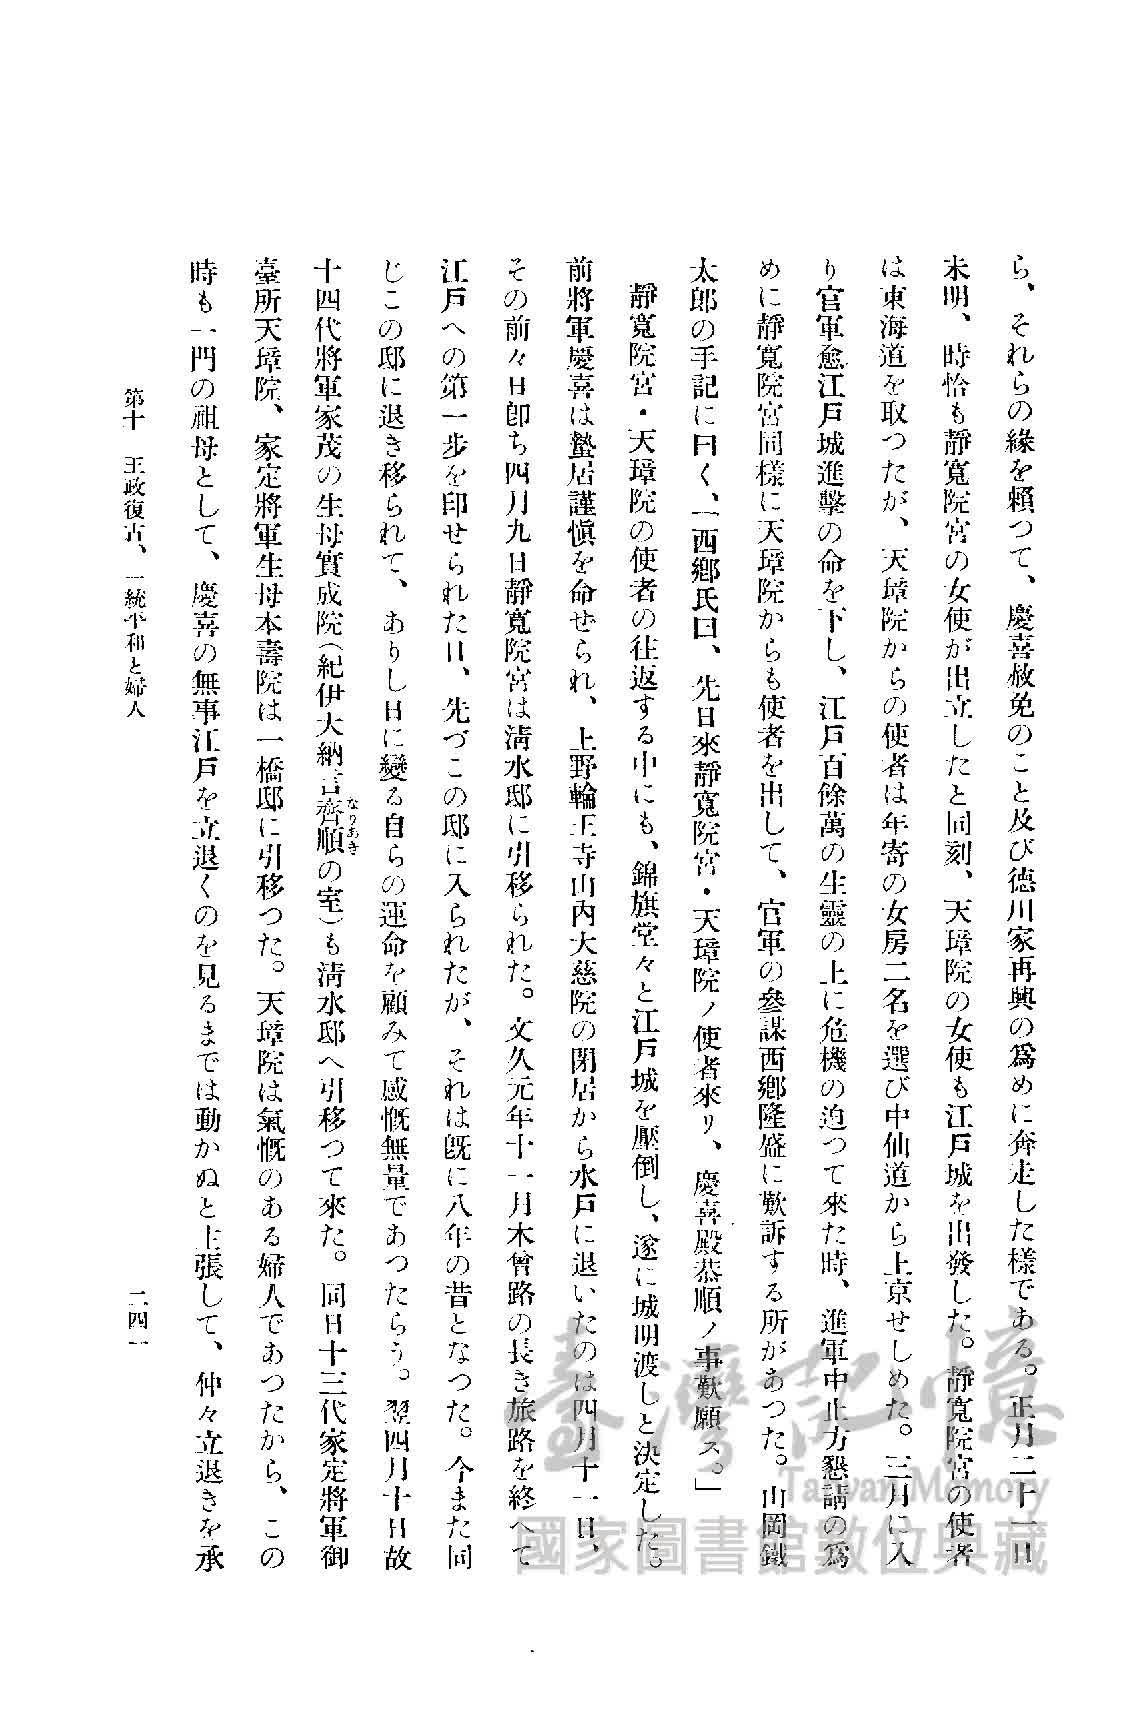 ら、それらの緣を賴つて、慶喜赦免のこと及び德川家再興の爲めに奔走した樣である。正月二十一日
未明、時恰も靜寬院宮の女使が出立したと同刻、天璋院の女使も江戸城を出發した。靜寬院宮の使者
は東海道を取つたが、天璋院からの使者は年寄の女房二名を選び中仙道から上京せしめた。三月に入
り官軍愈江戸城進擊の命を下し、江戸百餘萬の生靈の上に危機の迫つて來た時、進軍中止方懇請の爲
めに靜寬院宮同樣に天璋院からも使者を出して、官軍の參謀西鄕隆盛に歎訴する所があつた。山岡鐵
太郎の手記に曰く、「西鄕氏曰、先日來靜寬院宮・天璋院ノ使者來リ、慶喜殿恭順ノ事歎願ス。」
靜寬院宮・天璋院の使者の往返する中にも、錦旗堂々と江戸城を壓倒し、遂に城明渡しと決定した。
前將軍慶喜は蟄居謹愼を命ぜられ、上野輪王寺山內大慈院の閉居から水戸に退いたのは四月十一日、
その前々日卽ち四月九日靜寬院宮は淸水邸に引移られた。文久元年十一月木曾路の長き旅路を終へて
江戸への第一步を印せられた日、先づこの邸に入られたが、それは旣に八年の昔となつた。今また同
じこの邸に退き移られて、ありし日に變る自らの運命を顧みて感慨無量であつたらう。翌四月十日故
十四代將軍家茂の生母實成院（紀伊大納言齊順なりあきの室）も淸水邸へ引移つて來た。同日十三代家定將軍御
臺所天璋院、家定將軍生母本壽院は一橋邸に引移つた。天璋院は氣慨のある婦人であつたから、この
時も一門の祖母として、慶喜の無事江戸を立退くのを見るまでは動かぬと主張して、仲々立退きを承
第十　王政復古、一統平和と婦人
二四一
臺灣記憶
Taiwan Memory
國家圖書館數位典藏